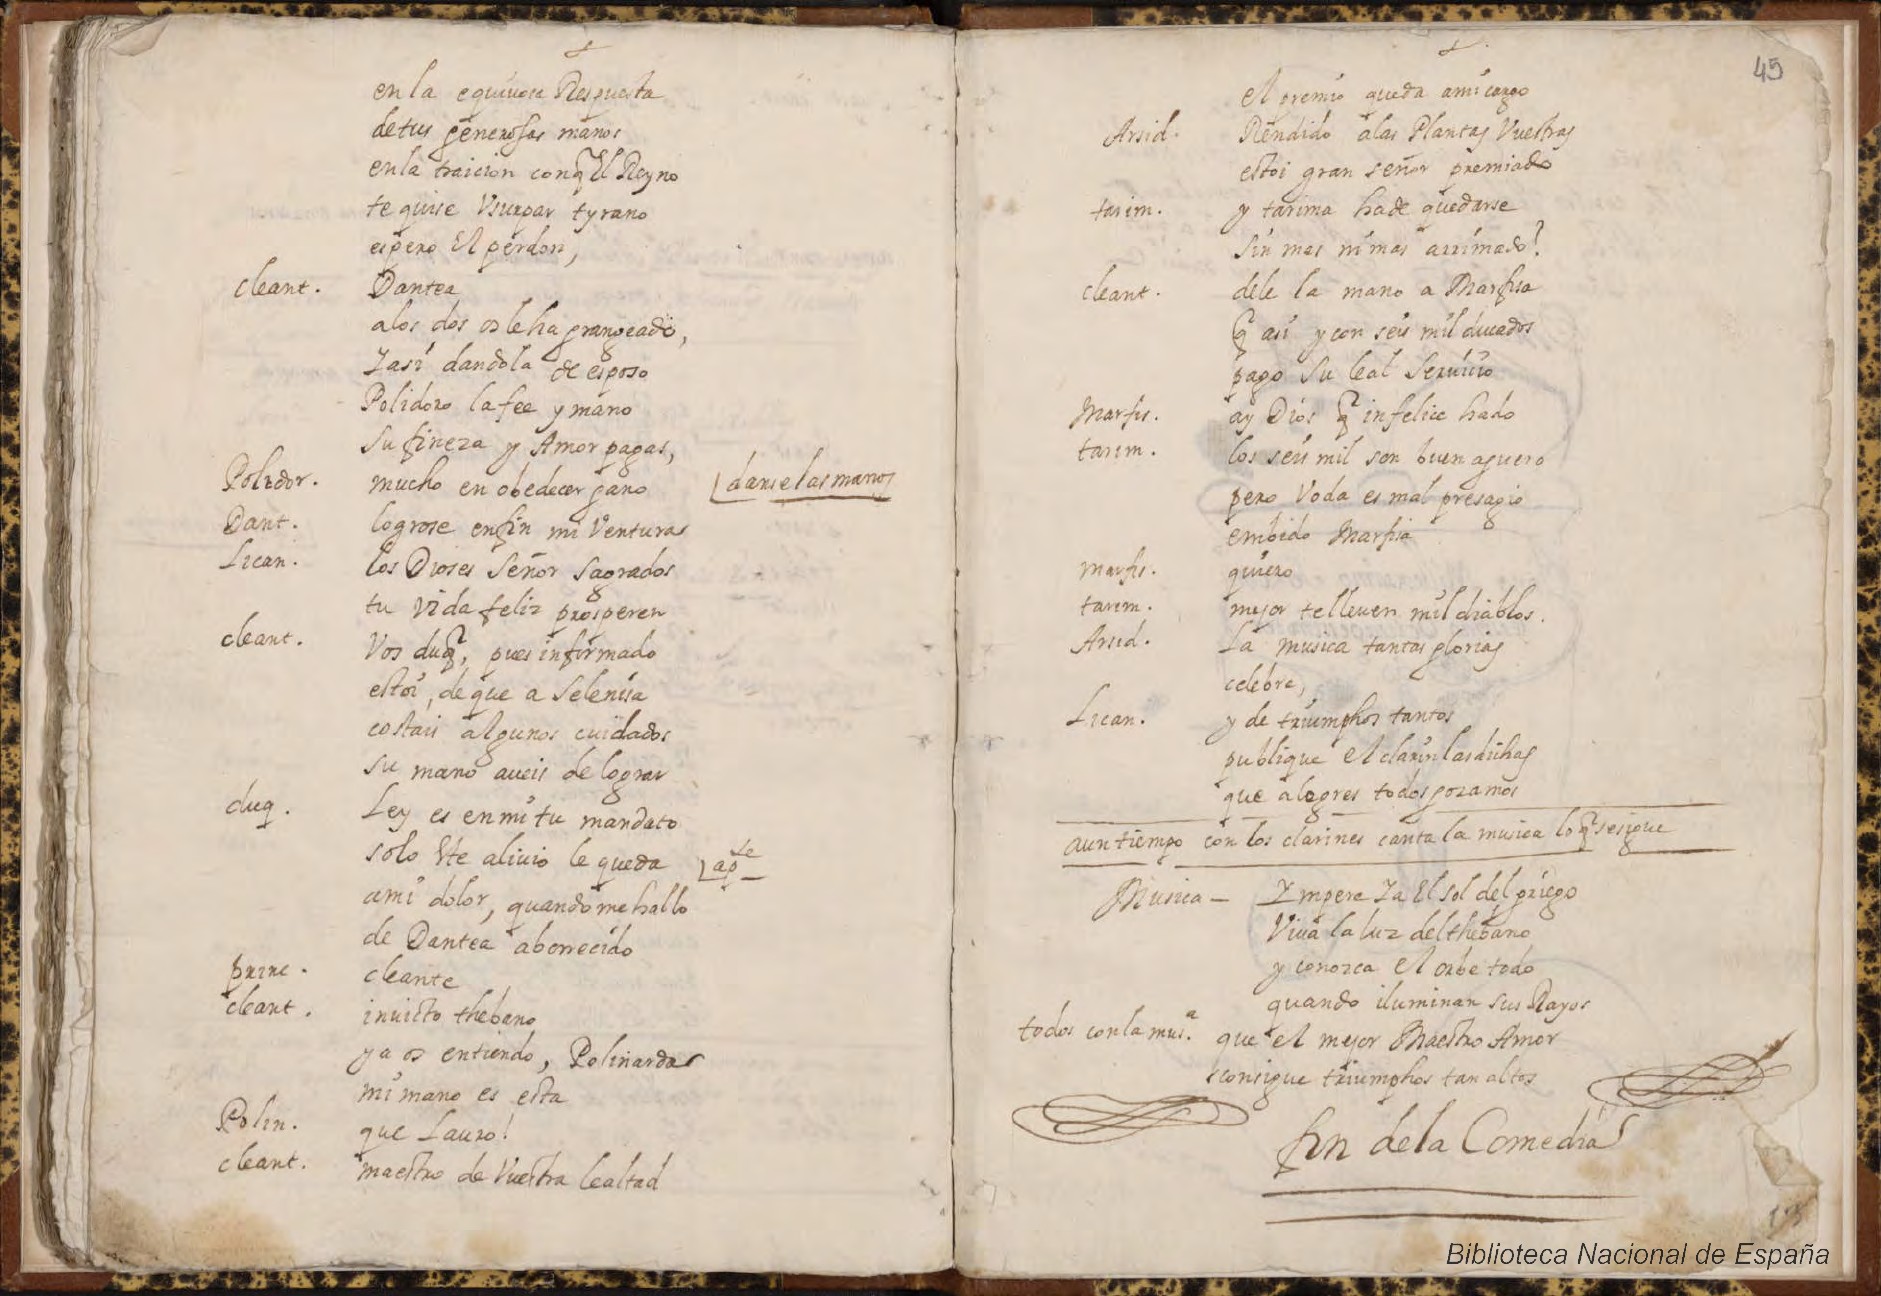 en la equiuoca Respuesta
de tus generosas manos
en la traicion conq̃ El Reyno
te quise Vsurpar tyrano
espero El perdon,
cleant. Dantea
a los dos os le ha grangeado,
Y asi dandola de esposo
Polidoro la fee y mano
su fineza y Amor pagas,
Polidor. mucho en obedecer gano
danse las manos
Dant. lograse en fin mi Ventura
Lican. los Dioses Señor Sagrados
tu vida feliz prosperen
cleant. Vos duq̃, pues informado
estoi, de que a Selenisa
costais algunos cuidados
su mano aueis de lograr
duq. Ley es en mi tu mandato
solo Este aliuio le queda
ap te
a mi dolor, quando me hallo
de Dantea aborrecido
princ. cleante
cleant. inuicto thebano
ya os entiendo, Polinarda
mi mano es esta
Polin. que Lauro!
cleant. maestro de Vuestra lealtad
45
el premio queda a mi cargo
Arsid. Rendido a las Plantas Vuestras
estoi gran señor premiado
tarim. y tarima ha de quedarse
sin mas ni mas arrimado?
cleant. dele la mano a Marfisa
q̃ asi y con seis mil ducados
pago su leal Seruiçio
Marfis. ay Dios q̃ infelice hado
tarim. los seis mil son buen aguero
pero Voda es mal presagio
embido Marfisa
marfis. quiero
tarim. mejor te lleuen mil diablos.
Arsid. La musica tantas glorias
celebre,
Lican. y de triumphos tantos
publique el clarin las dichas
que alegres todos gozamos
a un tiempo con los clarines canta la musica lo q̃ se sigue
Musica — Ympere Ya El Sol del griego
Viua la luz del thebano
y conozca el orbe todo
quando iluminan sus Rayos
todos con la mus.a que el mejor Maestro Amor
consigue triumphos tan altos
fin de la Comedia
Biblioteca Nacional de España